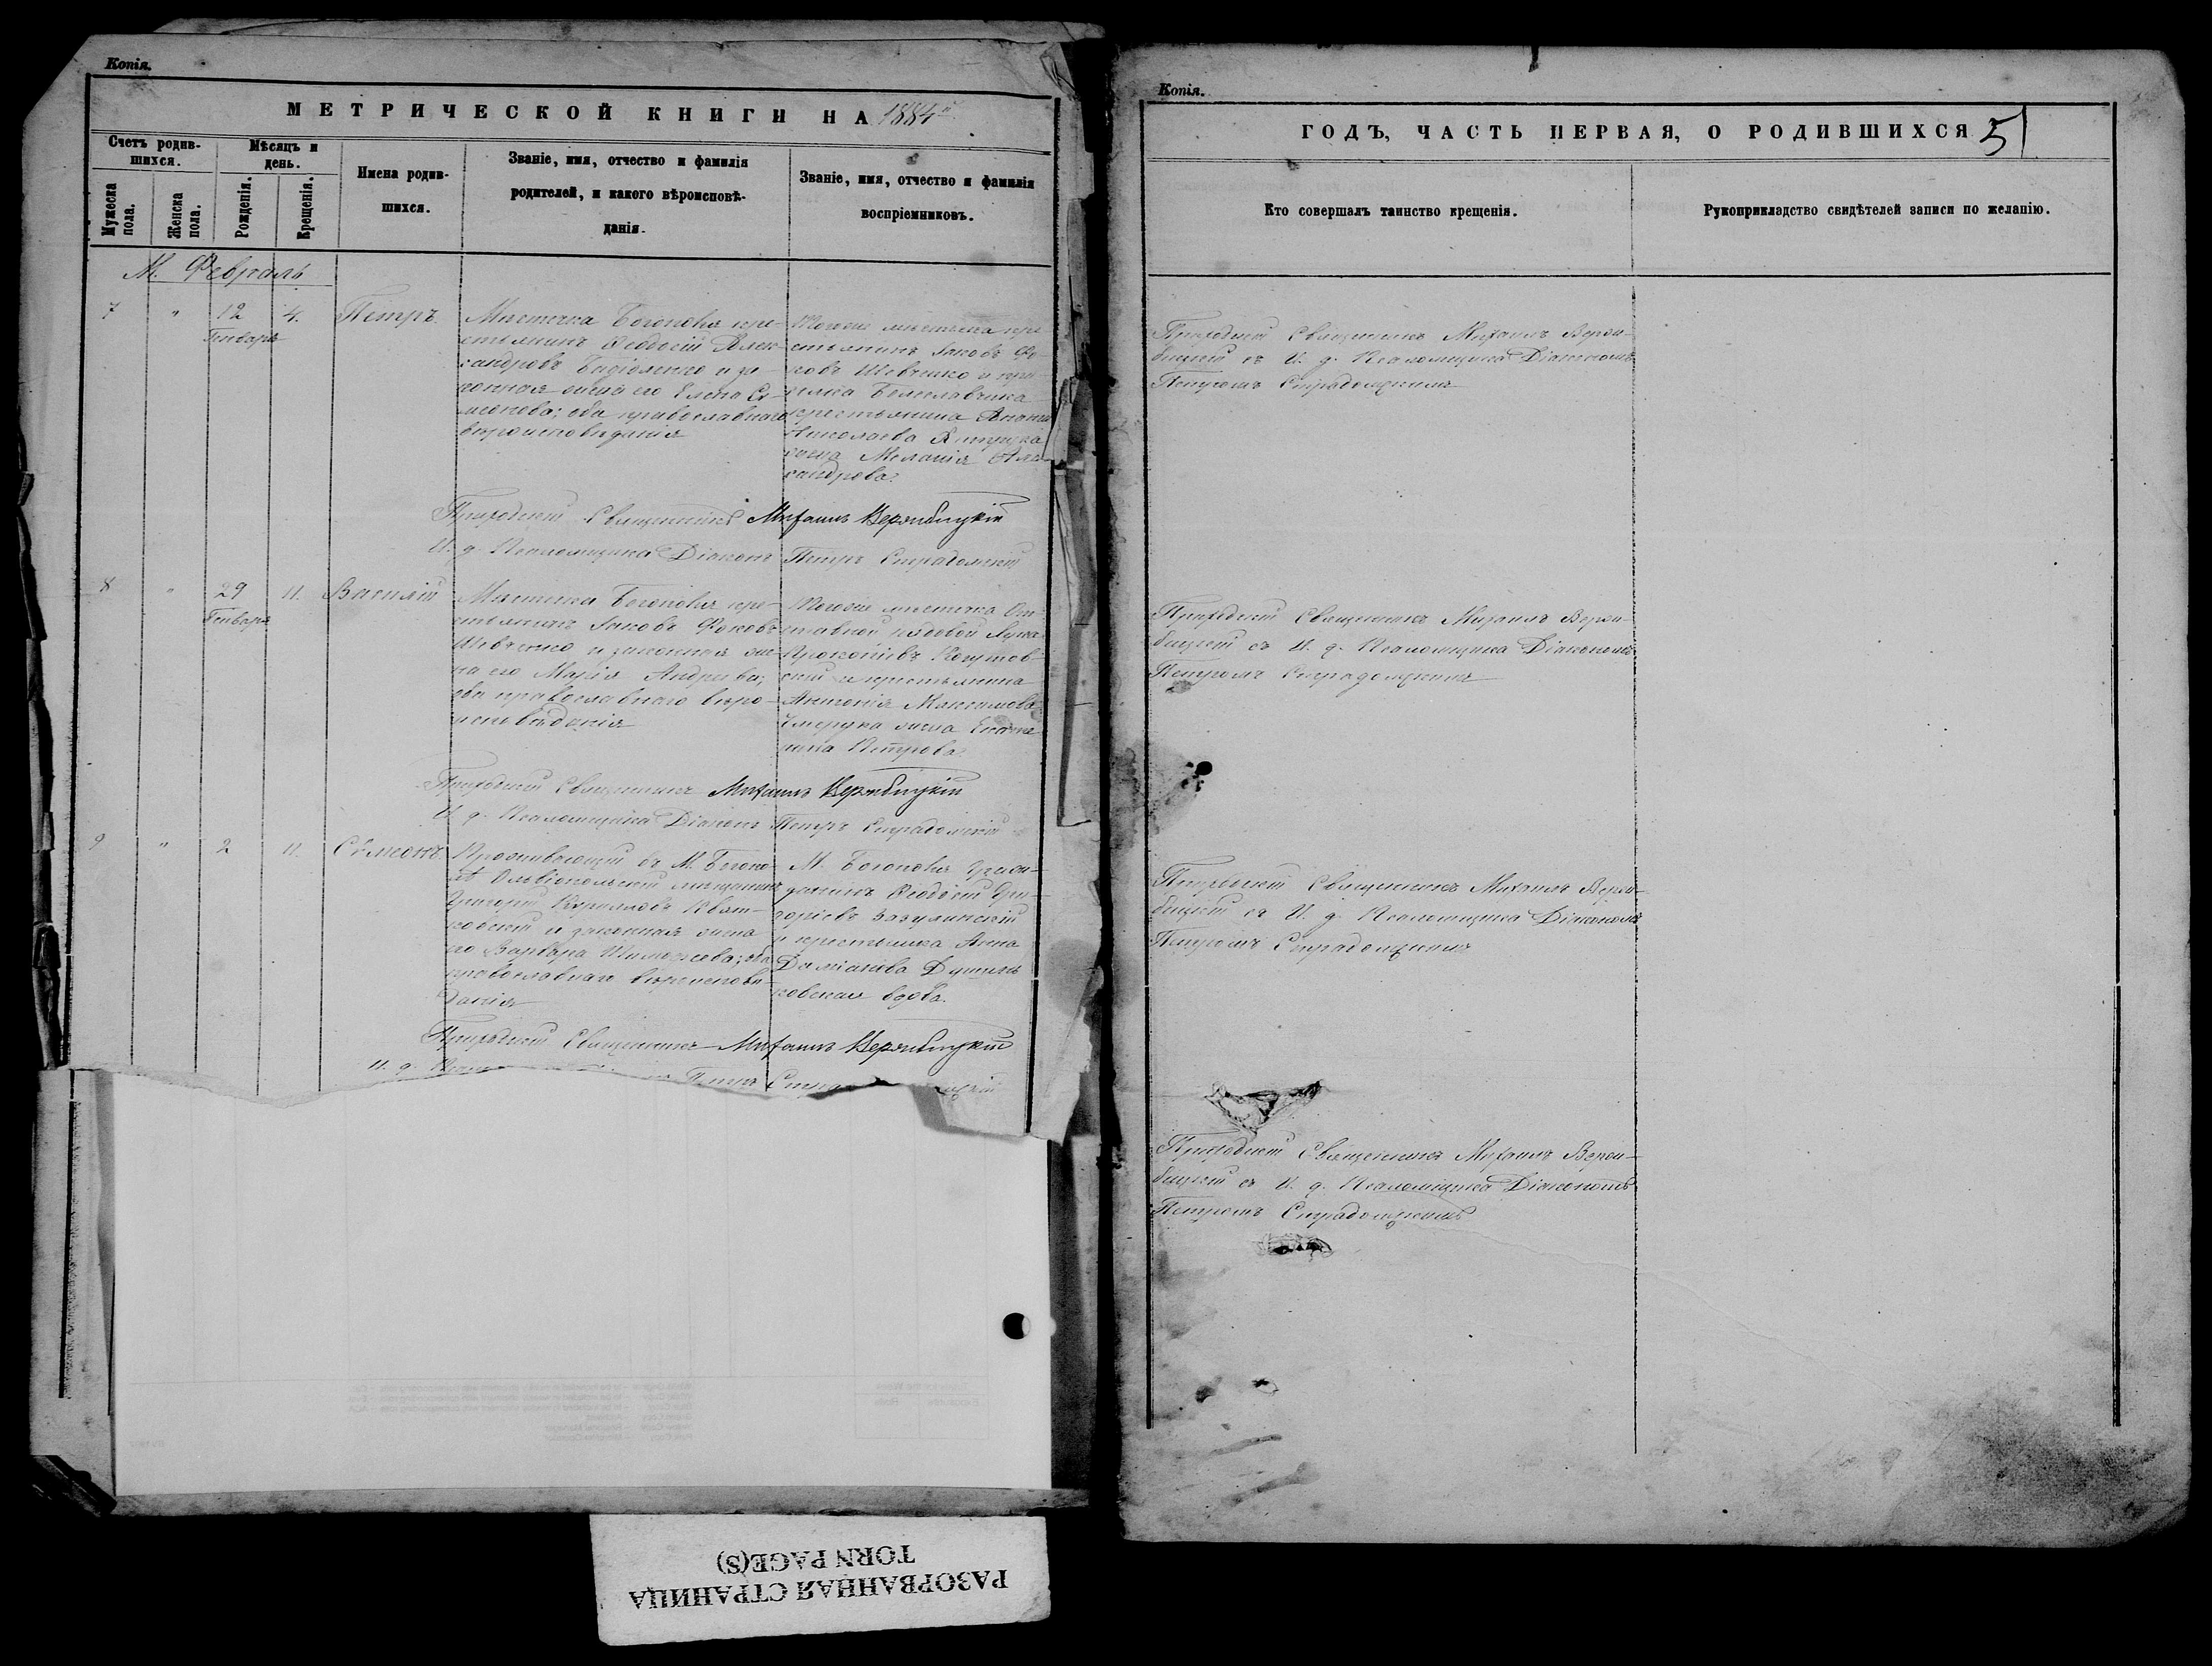 Копія.
МЕТРИЧЕСКОЙ КНИГИ НА 1884й
Счетъ родив-
шихся.
Мѣсяцъ и
день.
Мужеска
пола.
Женска
пола.
Рожденія.
Крещенія.
Имена родив-
шихся.
Званіе, имя, отчество и фамилія
родителей, и какого вѣроисповѣ-
данія.
Званіе, имя, отчество и фамилія
воспріемниковъ.
М. Февраль
7 " 12 Генваря 4. Петръ.
Мѣстечка Богополя кре-
стьянинъ Ѳеодосій Алек-
сандровъ и за-
конная жена его Елена Си-
меонова; оба православнаго
вѣроисповѣданія
Тогоже мѣстечка кре
стьянинъ Іаковъ Фо-
ковъ Шевченко и
крестьянина Ананіи
Николаева
жена Меланія Алек
сандрова.
Приходскій Священникъ Михаилъ Вержбицкій
И. д. Псаломщика Діаконъ Петръ Страдомскій
8 " 29 Генваря 11. Василій
Мѣстечка Богополя кре-
стьянинъ Іаковъ Фоковъ
Шевченко и законная же-
на его Марія Андреева;
оба православнаго вѣро-
исповѣданія
Тогоже мѣстечка От-
ставной рядовой Лука
Прокопіевъ
и крестьянина
Антонія Максимова
жена Екате
рина Петрова.
Приходскій Священникъ Михаилъ Вержбицкій
И. д. Псаломщика Діаконъ Петръ Страдомскій
9 " 2 11. Сѵмеонъ
Проживающій въ М. Богопо-
лѣ Ольвіопольскій мѣщанинъ
Григорій Кирилловъ Квят-
ковскій и законная жена
его Варвара Тимоѳеева; оба
православнаго вѣроисповѣ-
данія
М. Богополя Граж-
данинъ Ѳеодосій Гри-
горіевъ Зазулинскій
и крестьянка Анна
Даміанова
ковская вдова.
Приходскій Священникъ Михаилъ Вержбицкій
И. д. Петръ
Копія.
ГОДЪ, ЧАСТЬ ПЕРВАЯ, О РОДИВШИХСЯ 51
Кто совершалъ таинство крещенія.
Рукоприкладство свидѣтелей записи по желанію.
Приходскій Священникъ Михаилъ Верж-
бицкій съ И. д. Псаломщика Діакономъ
Петромъ Страдомскимъ
Приходскій Священникъ Михаилъ Верж-
бицкій съ И. д. Псаломщика Діакономъ
Петромъ Страдомскимъ
Приходскій Священникъ Михаилъ Верж-
бицкій съ И. д. Псаломщика Діакономъ
Петромъ Страдомскимъ
Приходскій Священникъ Михаилъ Верж-
бицкій съ И. д. Псаломщика Діакономъ
Петромъ Страдомскимъ
РАЗОРВАННАЯ СТРАНИЦА
TORN PAGE(S)